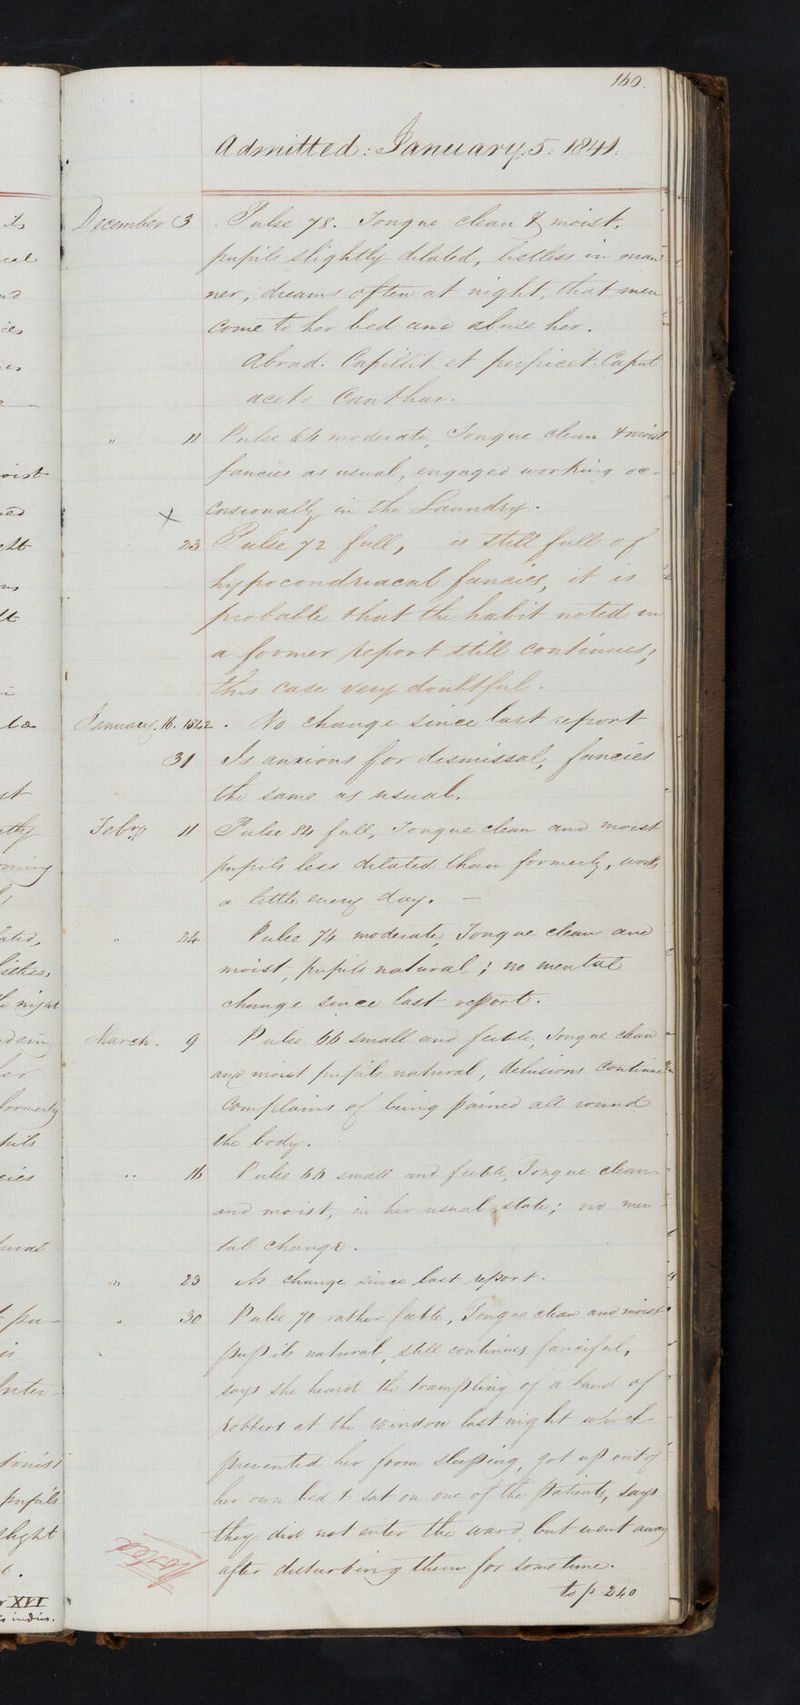 160.
Admitted: January. 5. 1841.
December 3 Pulse 78. Tongue clean & moist,
pupils slightly dilated, listless in man
ner; dreams often at night, that men
come to her bed and abuse her.
Abrad. Capillit et perfricet. Caput
aceto Canthar.
" 11 Pulse 64 moderate, Tongue clean & moist
fancies as usual, engaged working oc-
casionally in the Laundry.
X
23 Pulse 72 full, is still full of
hypocondriacal fancies, it is
probable that the habit noted in
a former report still continues;
this case very doubtful.
January. 16. 1842. No change since last report
31 Is anxious for dismissal, fancies
the same as usual.
Febry 11 Pulse 84 full, Tongue clean and moist
pupils less dilated than formerly, works
a little every day. —
" 24 Pulse 74 moderate, Tongue clean and
moist, pupils natural; no mental
change since last report.
March. 9 Pulse 66 small and feeble, Tongue clean
and moist pupils natural, delusions continue
Complains of being pained all round
the body.
" 16 Pulse 66 small and feeble, Tongue clean
and moist, in her usual state; no men
tal change.
" 23 No change since last report.
" 30 Pulse 70 rather feeble, Tongue clean and moist
pupils natural, still continues fanciful,
says she heard the trampling of a band of
robbers at the window last night which
prevented her from sleeping, got up out of
her own bed & sat on one of the patients, says
they did not enter the ward but went away
after disturbing them for some time.
to p 240